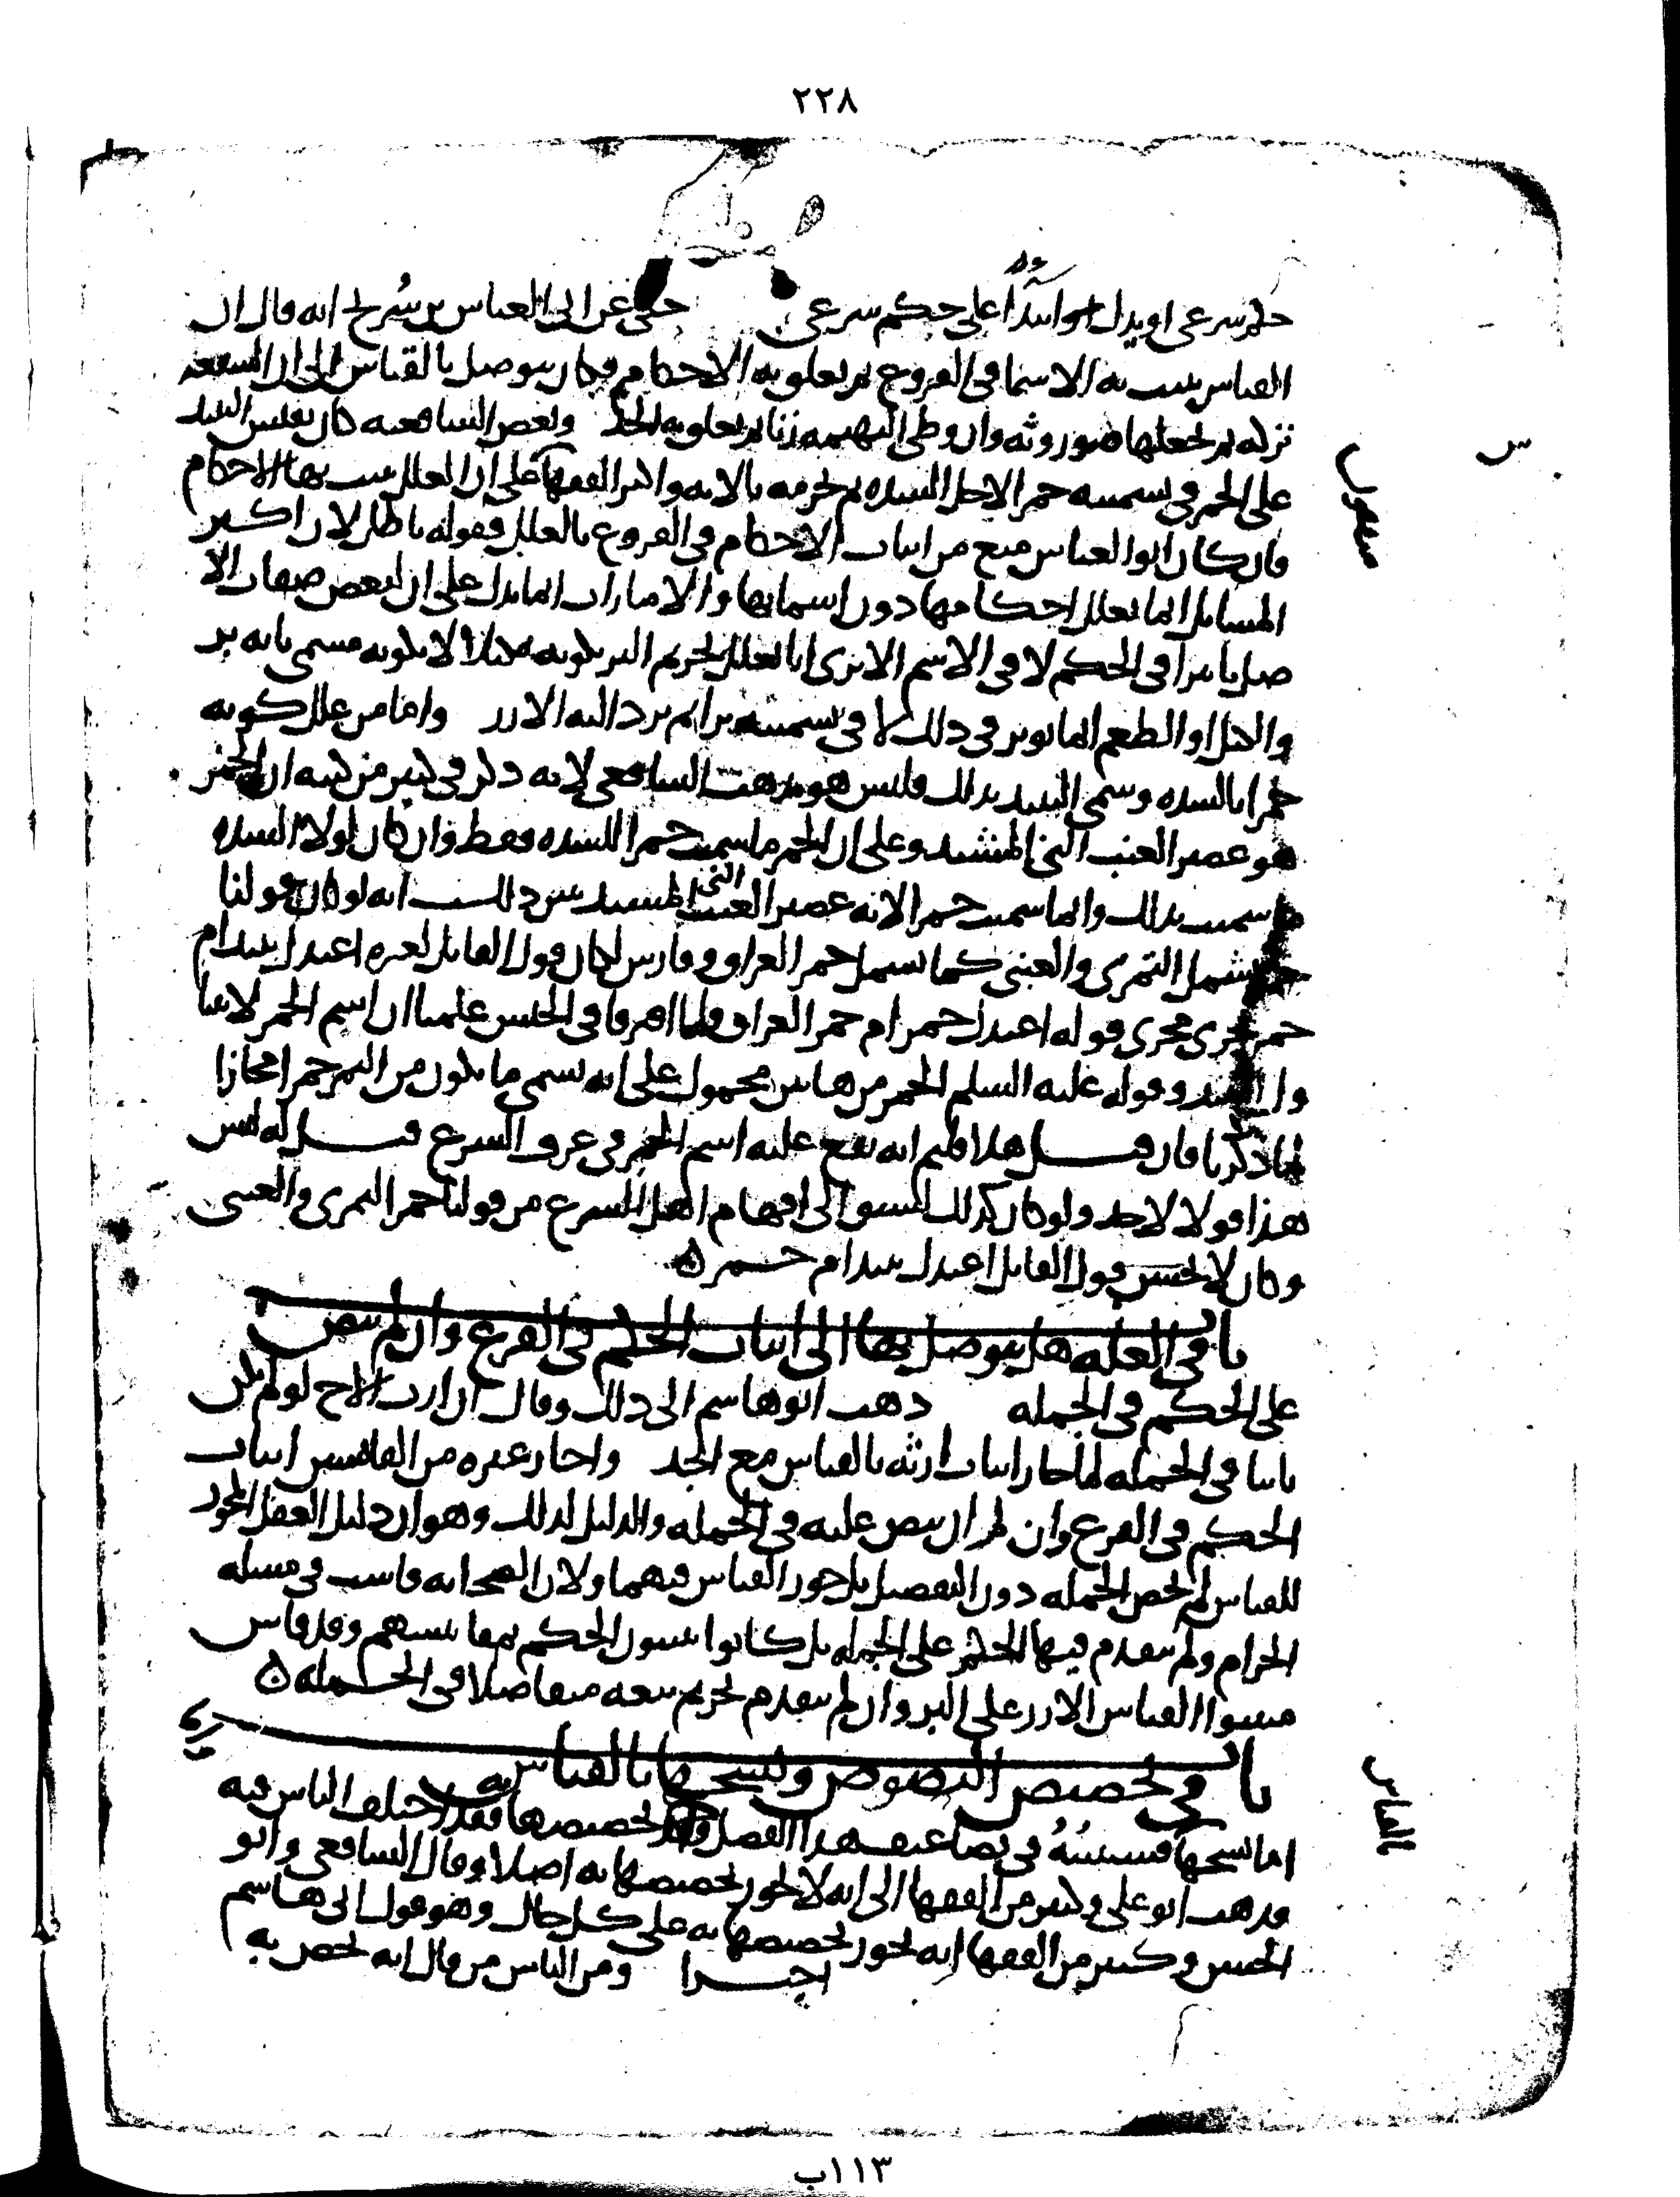 ٢٢٨
حكم شرعي او يدل ابتدا على حكم شرعي حكي عن ابي العباس بن سُريج انه قال ان
القياس يثبت به الاسما في الفروع ثم يعلق به الاحكام فكان يتوصل بالقياس الى ان الشفعه
تركه ثم يجعلها موروثه وان وطي البهيمه زنا ثم يعلق به الحد وبعض الشافعيه كان يقيس النبيذ
على الخمر في تسميته خمرا لاجل الشده ثم يحرمه بالايه واكثر الفقها على ان العلل يثبت بها الاحكام
فان كان ابو العباس منع من اثبات الاحكام في الفروع بالعلل فقوله باطل لان اكثر
المسايل انما تعلل احكامها دون اسمايها والامارات انما تدل على ان لبعض صفات الا
صل تاثيرا في الحكم لا في الاسم الا ترى انا نعلل تحريم البر بكونه مكيلا لا بكونه مسمى بانه بر
والكيل او الطعم انما يوثر في ذلك لا في تسميته برا ثم يرد اليه الارز واما من علل كونه
خمرا بالشده وسمى النبيذ بذلك فليس هو مذهب الشافعي لانه ذكر في كثير من كتبه ان الخمر
هو عصير العنب الني المشتد وعلى ان الخمر ما سميت خمرا للشده فقط وان كان لولا الشده
ما سميت بذلك وانما سميت خمرا لانه عصير العنب الني المشتد يبين ذلك انه لو كان قولنا
خمر يشمل التمري والعنبي كما يشمل خمر العراق وفارس لكان قول القايل لغيره اعندك نبيذ ام
خمر يجري مجرى قوله اعندك خمر ام خمر العراق ولما افترقا في الحسن علمنا ان اسم الخمر لا يتنا
ول النبيذ وقوله عليه السلم الخمر من هاتين محمول على انه يسمى ما يكون من التمر خمرا مجازا
لما ذكرنا فان قيل هلا قلتم انه يقع عليه اسم الخمر في عرف الشرع قيل له ليس
هذا قولا لاحد ولو كان كذلك لسبق الى افهام اهل الشرع من قولنا خمر التمري والعنبي
وكان لا يحسن قول القايل اعندك نبيذ ام خمر ۵
باب في العله هل يتوصل بها الى اثبات الحكم في الفرع وان لم ينص
على الحكم في الجمله ذهب ابو هاشم الى ذلك وقال ان ارث الاخ لو لم يكن
ثابتا في الجمله لما جاز اثبات ارثه بالقياس مع الجد واجاز غيره من القايسين اثبات
الحكم في الفرع وان لم ينص عليه في الجمله والدليل لذلك وهو ان دليل العقل المجوز
للقياس لم يخص الجمله دون التفصيل بل جوز القياس فيهما ولان الصحابه قاست في مسله
الحرام ولم يتقدم فيها الحكم على الجمله بل كانوا يثبتون الحكم بمقايستهم وقد قاس
مثبتوا القياس الارز على البر وان لم يتقدم تحريم بيعه متفاضلا في الجمله ۵
باب في تخصيص النصوص ونسخها بالقياس
اما نسخها به فسنبينه في تضاعيف هذا الفصل واما تخصيصها فقد اختلف الناس فيه
فذهب ابو علي وكثير من الفقها الى انه لا يجوز تخصيصها به اصلا وقال الشافعي وابو
الحسن وكثير من الفقها انه يجوز تخصيصها به على كل حال وهو قول ابي هاشم
اخيرا ومن الناس من قال انه يخص به
١١٣ب